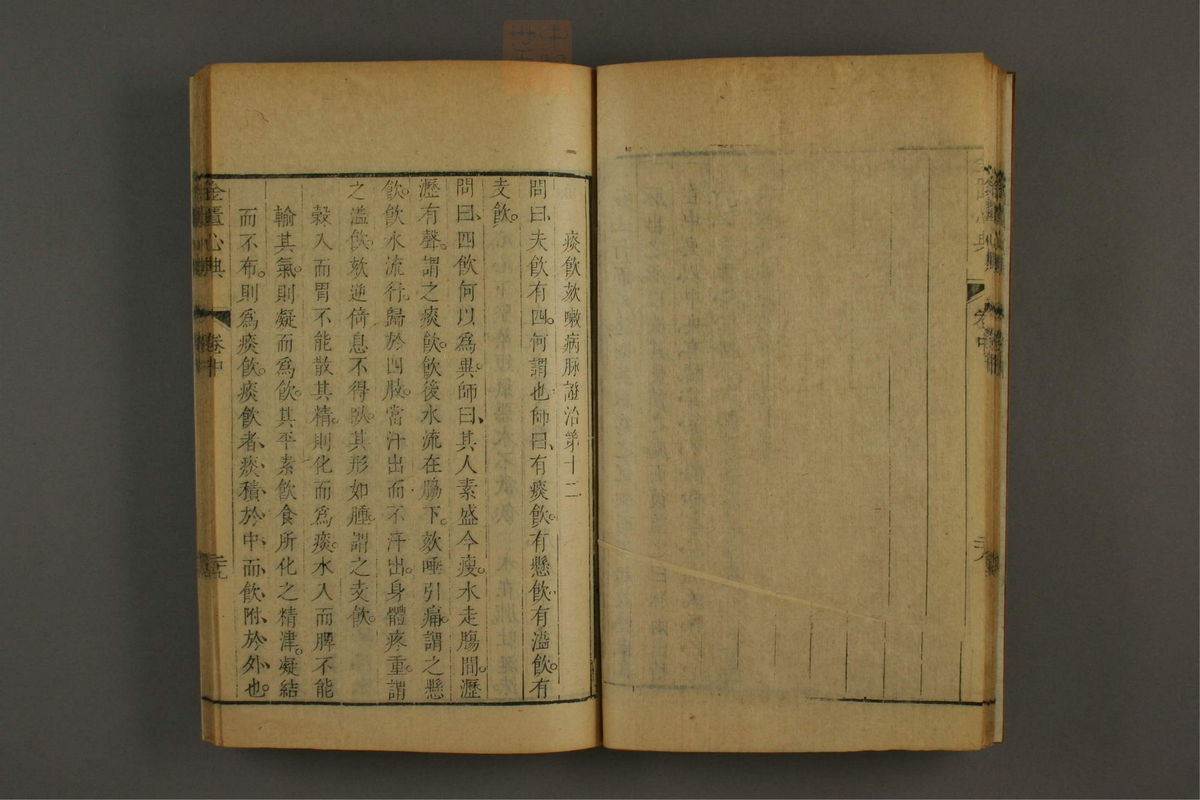 痰飲欬嗽病脉證治第十二
問曰、夫飲有四。何謂也。師曰、有痰飲。有懸飲。有溢飲。有
支飲。
問曰、四飲何以爲異。師曰、其人素盛今瘦。水走腸間。瀝
瀝有聲。謂之痰飲。飲後水流在脇下。欬唾引痛。謂之懸
飲。飲水流行。歸於四肢。當汗出而不汗出。身體疼重。謂
之溢飲。欬逆倚息不得臥。其形如腫。謂之支飲。
穀入而胃不能散其精。則化而爲痰。水入而脾不能
輸其氣。則凝而爲飲。其平素飲食所化之精津。凝結
而不布。則爲痰飲。痰飲者、痰積於中、而飲附於外也。
金匱心典
卷中
三九